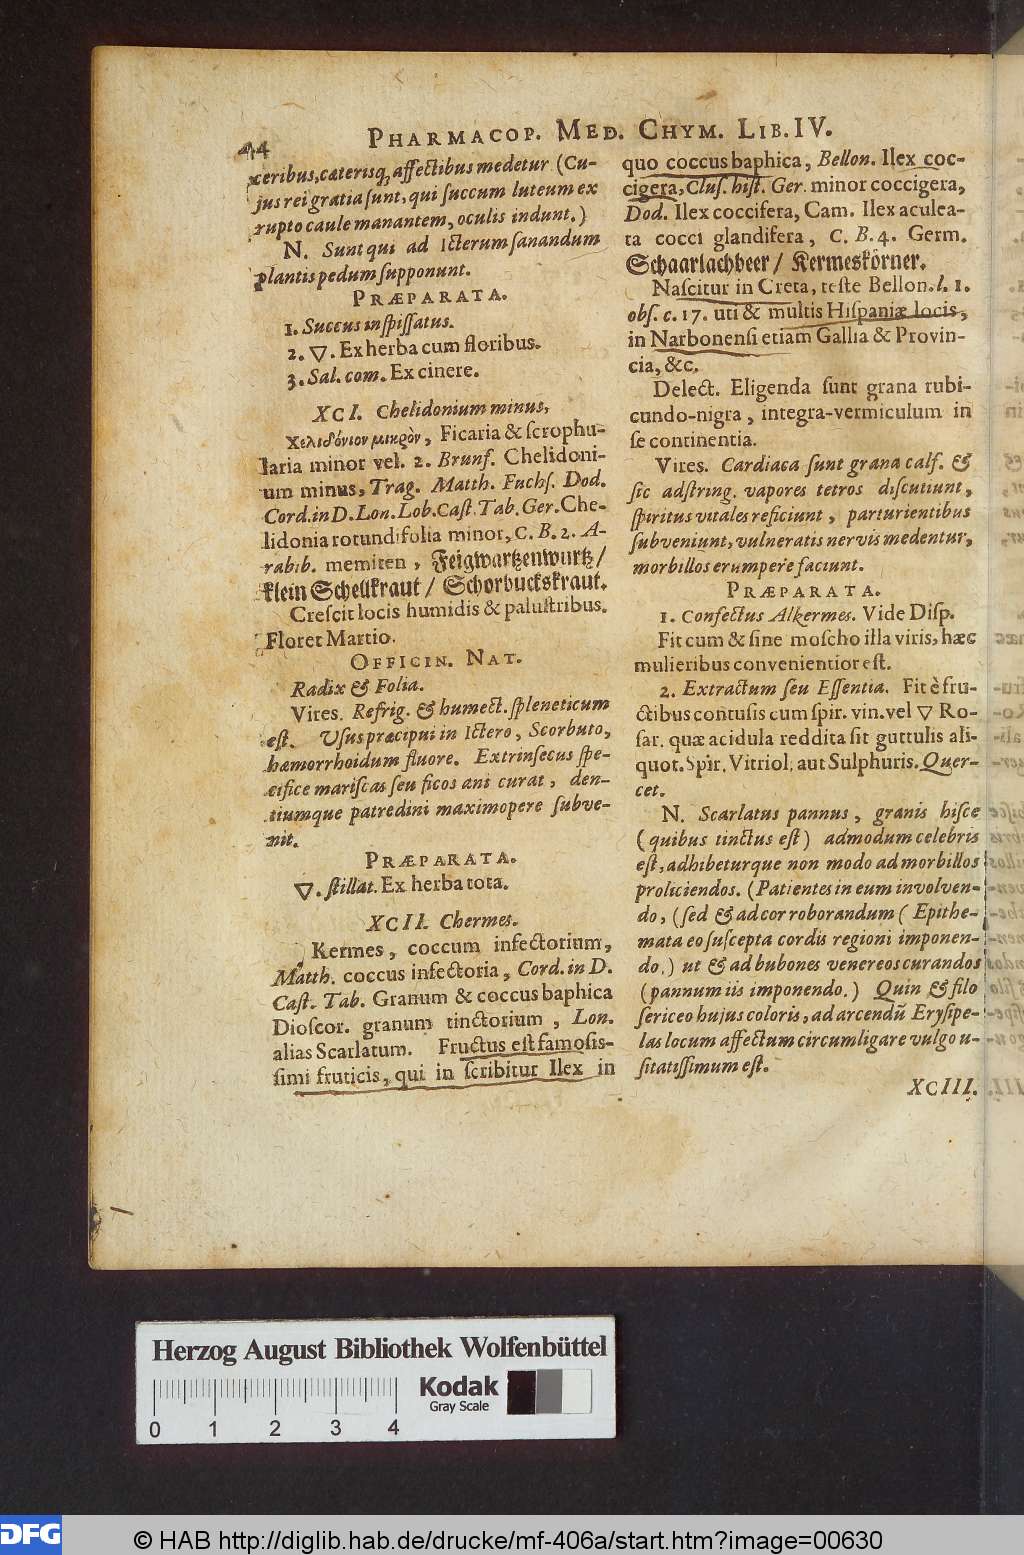 44
PHARMACOP. MED. CHYM. LIB. IV.
ceribus, cæterisq; affectibus medetur (Cu-
jus rei gratia sunt, qui succum luteum ex
rupto caule manantem, oculis indunt.)
N. Sunt qui ad Icterum sanandum
plantis pedum supponunt.
PRÆPARATA.
1. Succus inspissatus.
2. ▽. Ex herba cum floribus.
3. Sal. com. Ex cinere.
XCI. Chelidonium minus,
Χελιδόνιον μικρὸν, Ficaria & scrophu-
laria minor vel. 2. Brunf. Chelidoni-
um minus, Trag. Matth. Fuchs. Dod.
Cord. in D. Lon. Lob. Cast. Tab. Ger. Che-
lidonia rotundifolia minor, C. B. 2. A-
rabib. memiren, Feigwartzenwurtz /
klein Schellkraut / Schorbuckskraut.
Crescit locis humidis & palustribus.
Floret Martio.
OFFICIN. NAT.
Radix & Folia.
Vires. Refrig. & humect. spleneticum
est. Usus præcipui in Ictero, Scorbuto,
hæmorrhoidum fluore. Extrinsecus spe-
cifice mariscas seu ficos ani curat, den-
tiumque patredini maximopere subve-
nit.
PRÆPARATA.
▽. stillat. Ex herba tota.
XCII. Chermes.
Kermes, coccum infectorium,
Matth. coccus infectoria, Cord. in D.
Cast. Tab. Granum & coccus baphica
Dioscor. granum tinctorium, Lon.
alias Scarlatum. Fructus est famosis-
simi fruticis, qui in scribitur Ilex in
quo coccus baphica, Bellon. Ilex coc-
cigera, Clus. hist. Ger. minor coccigera,
Dod. Ilex coccifera, Cam. Ilex aculea-
ta cocci glandifera, C. B. 4. Germ.
Schaarlachbeer / Kermeskörner.
Nascitur in Creta, teste Bellon. l. 1.
obs. c. 17. uti & multis Hispaniæ locis,
in Narbonensi etiam Gallia & Provin-
cia, &c.
Delect. Eligenda sunt grana rubi-
cundo-nigra, integra-vermiculum in
se continentia.
Vires. Cardiaca sunt grana calf. &
sic adstring. vapores tetros discutiunt,
spiritus vitales reficiunt, parturientibus
subveniunt, vulneratis nervis medentur,
morbillos erumpere faciunt.
PRÆPARATA.
1. Confectus Alkermes. Vide Disp.
Fit cum & sine moscho illa viris, hæc
mulieribus convenientior est.
2. Extractum seu Essentia. Fit è fru-
ctibus contusis cum spir. vin. vel ▽ Ro-
sar. quæ acidula reddita sit guttulis ali-
quot. Spir. Vitriol. aut Sulphuris. Quer-
cet.
N. Scarlatus pannus, granis hisce
(quibus tinctus est) admodum celebris
est, adhibeturque non modo ad morbillos
proliciendos. (Patientes in eum involven-
do, (sed & ad cor roborandum (Epithe-
mata eo suscepta cordis regioni imponen-
do.) ut & ad bubones venereos curandos
(pannum iis imponendo.) Quin & filo
sericeo hujus coloris, ad arcendū Erysipe-
las locum affectum circumligare vulgo u-
sitatissimum est.
XCIII.
Herzog August Bibliothek Wolfenbüttel
Kodak
Gray Scale
0 1 2 3 4
DFG
© HAB http://diglib.hab.de/drucke/mf-406a/start.htm?image=00630